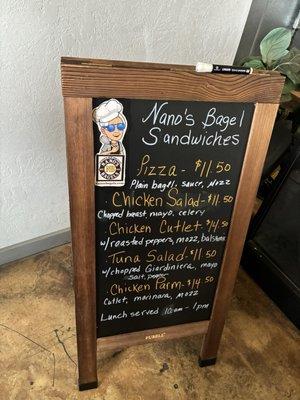 Nano's Bagel
Sandwiches
Pizza - $11.50
Plain bagel, sauce, Mozz
Chicken Salad - $11.50
Chopped breast, mayo, celery
Chicken Cutlet - $14.50
w/ roasted peppers, mozz, balsamic
Tuna Salad - $11.50
w/ chopped Giardiniera, mayo
salt, pepper
Chicken Parm - $14.50
Cutlet, marinara, mozz
Lunch served 10am - 1pm